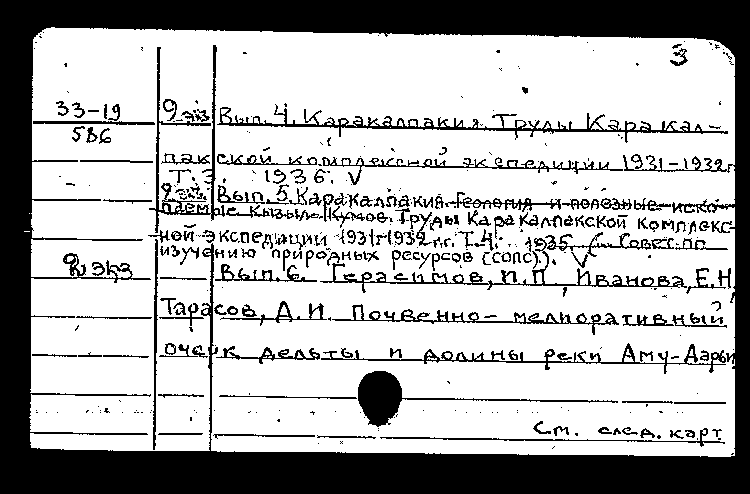 3
33-19
586
9 экз Вып. 4. Каракалпакия. Труды Каракал-
пакской комплексной экспедиции 1931-1932г
Т. 3. 1936. V
Вып. 5. Каракалпакия. Геология и полезные иско-
паемые Кызыл-Кумов. Труды Каракалпакской комплекс-
ной экспедиции 1931-1932 гг. Т.4. 1935. (Совет по
изучению природных ресурсов (СОПС)). V
2 экз Вып. 6. Герасимов, И.П., Иванова, Е.Н.
Тарасов, Д.И. Почвенно-мелиоративный
очерк дельты и долины реки Аму-Дарьи
См. след. карт